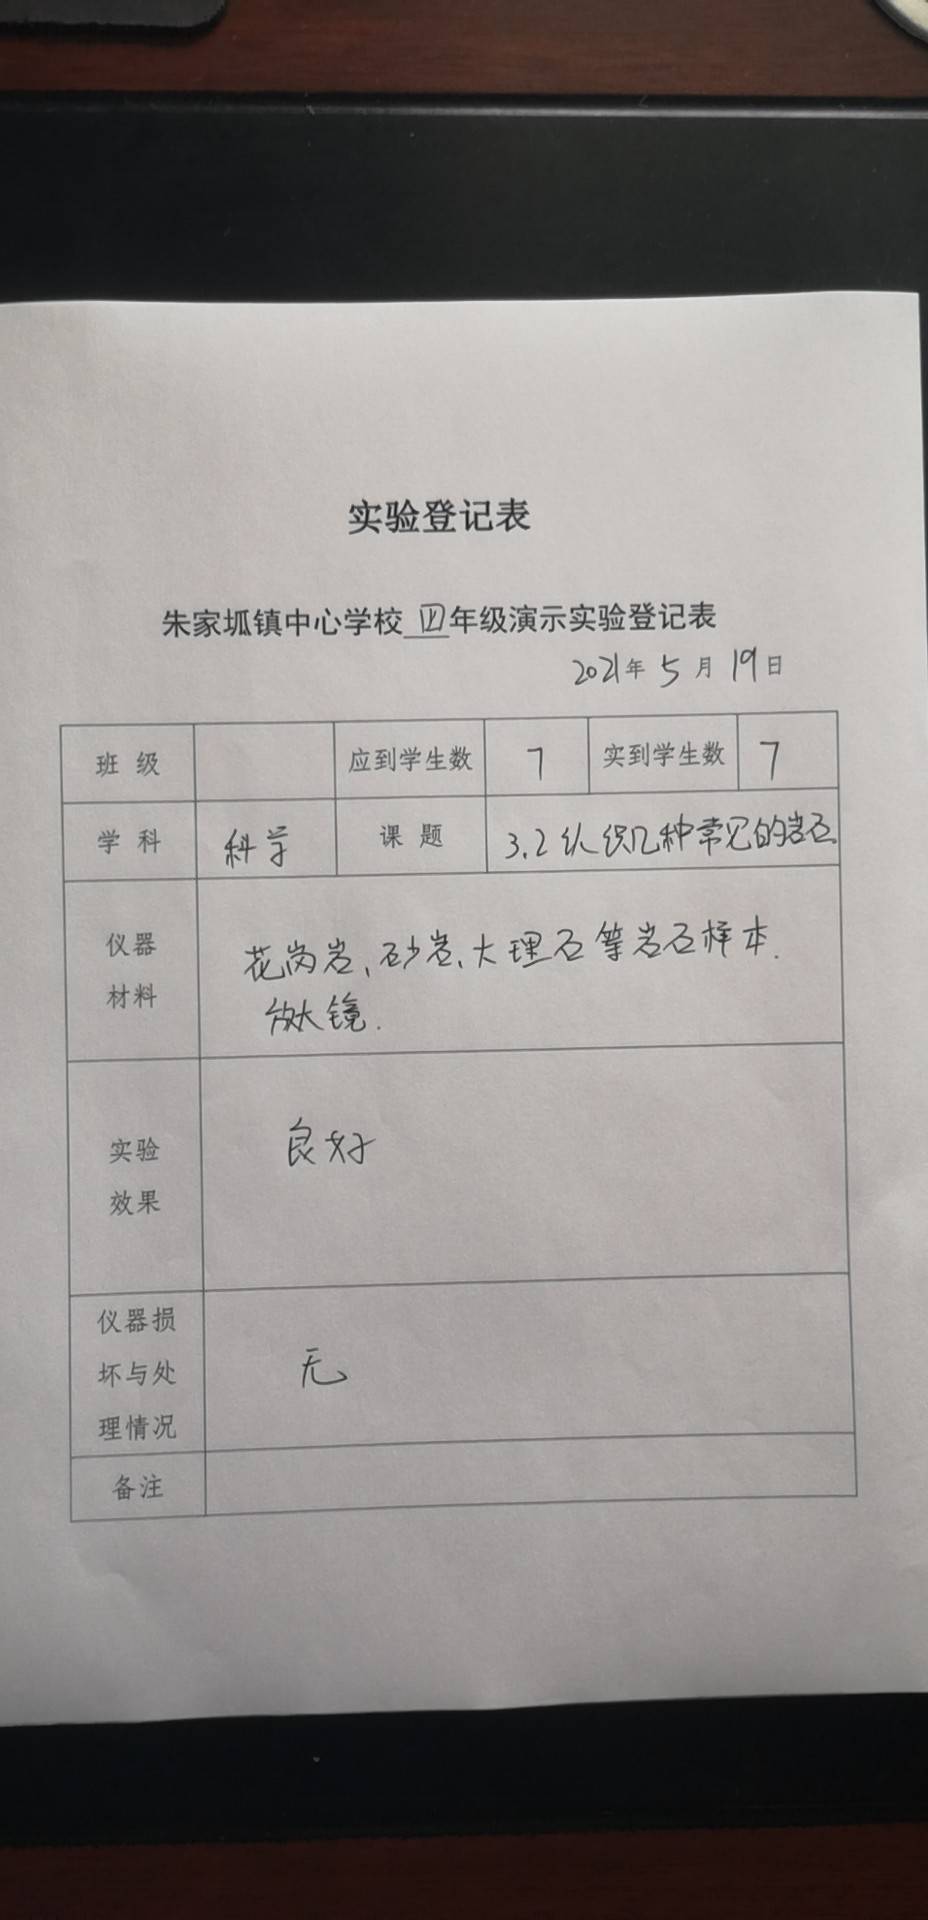 实验登记表
朱家坬镇中心学校 四 年级演示实验登记表
2021年 5 月 19日
班 级 应到学生数 7 实到学生数 7
学 科 科学 课 题 3.2 认识几种常见的岩石
仪器
材料
花岗岩、砂岩、大理石等岩石样本.
放大镜.
实验
效果
良好
仪器损
坏与处
理情况
无
备注